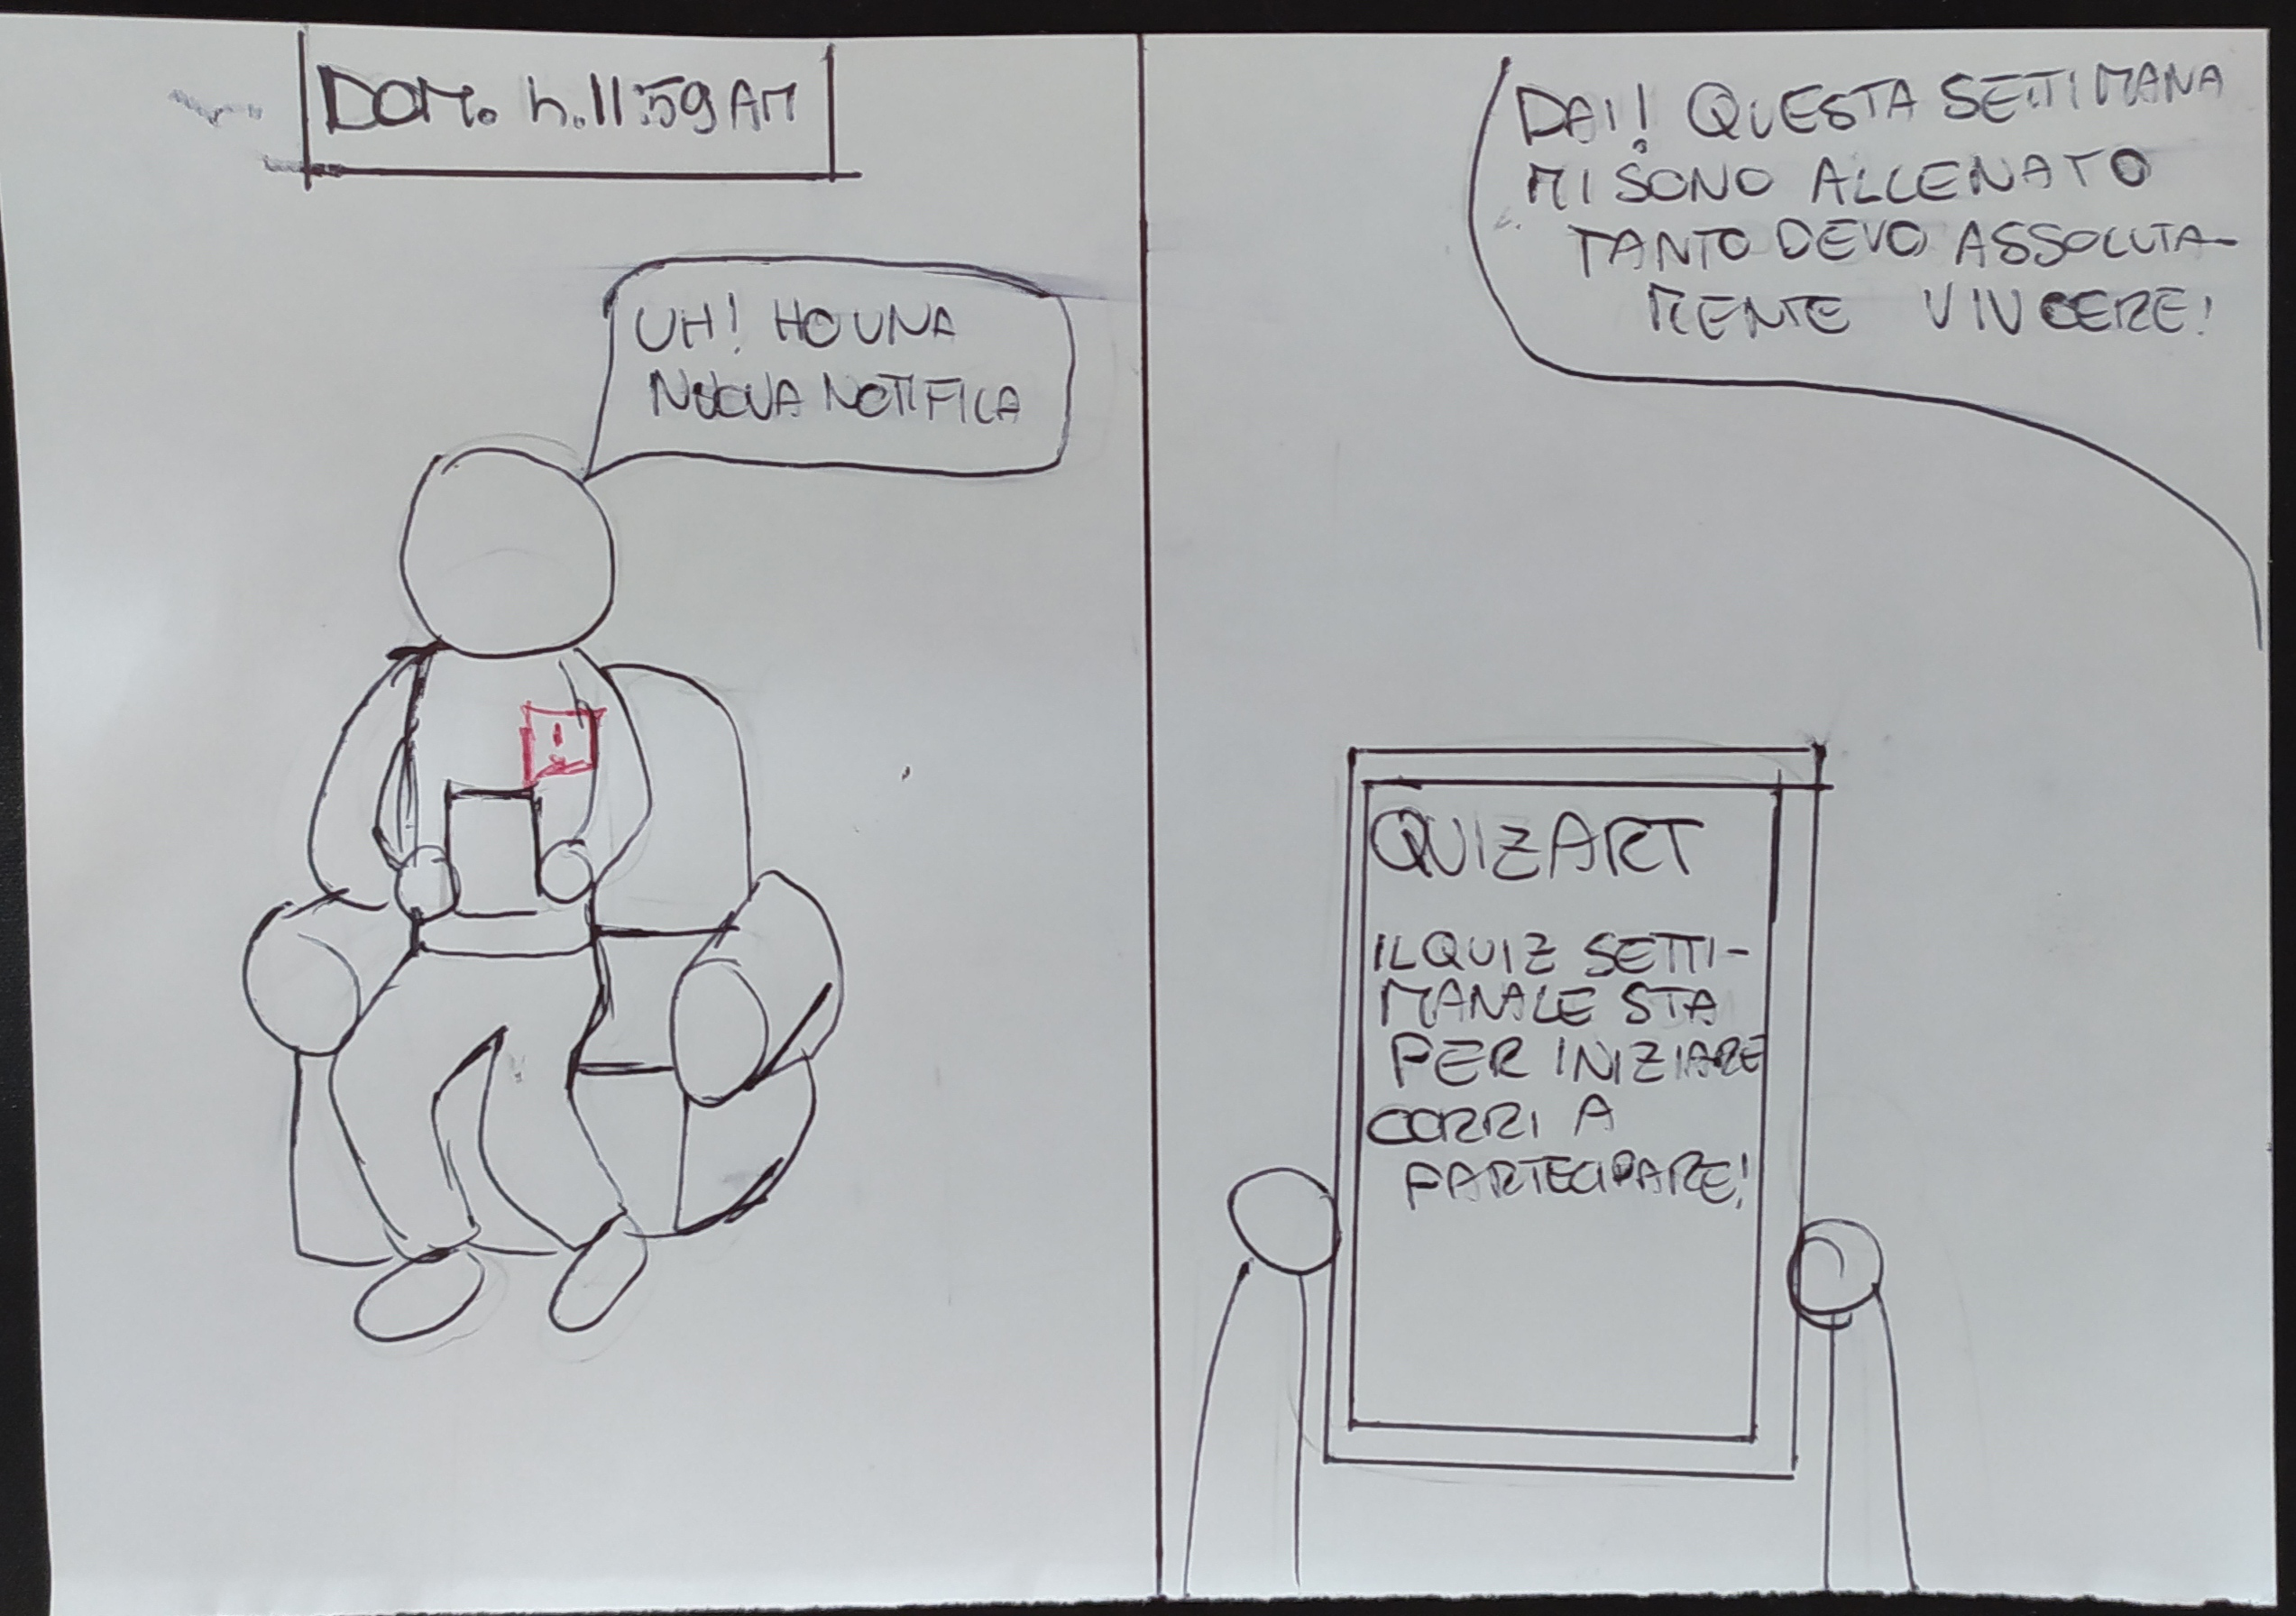 DOM. h.11:59 AM
UH! HO UNA
NUOVA NOTIFICA
!
DAI! QUESTA SETTIMANA
MI SONO ALLENATO
TANTO DEVO ASSOLUTA-
MENTE VINCERE!
QUIZART
IL QUIZ SETTI-
MANALE STA
PER INIZIARE
CORRI A
PARTECIPARE!